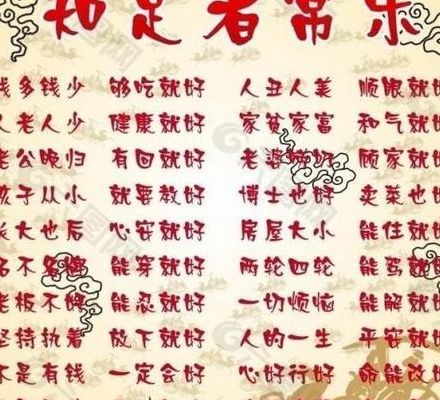 知足者常乐
钱多钱少 够吃就好 人丑人美 顺眼就好
人老人少 健康就好 家贫家富 和气就好
老公晚归 有回就好 老婆唠叨 顾家就好
孩子从小 就要教好 博士也好 卖菜也好
长大也后 心安就好 房屋大小 能住就好
名不名牌 能穿就好 两轮四轮 能驾就好
老板不好 能忍就好 一切烦恼 能解就好
坚持执着 放下就好 人的一生 平安就好
不是有钱 一定会好 心好行好 命能改好